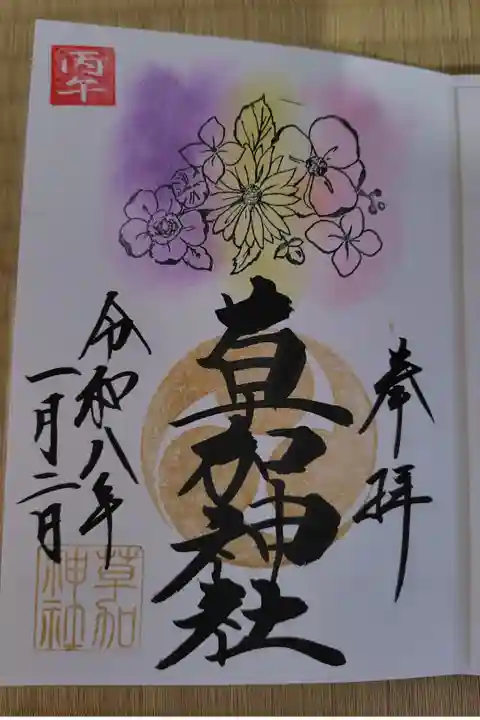 奉拝
草加神社
令和八年
一月二日
丙午
草加
神社